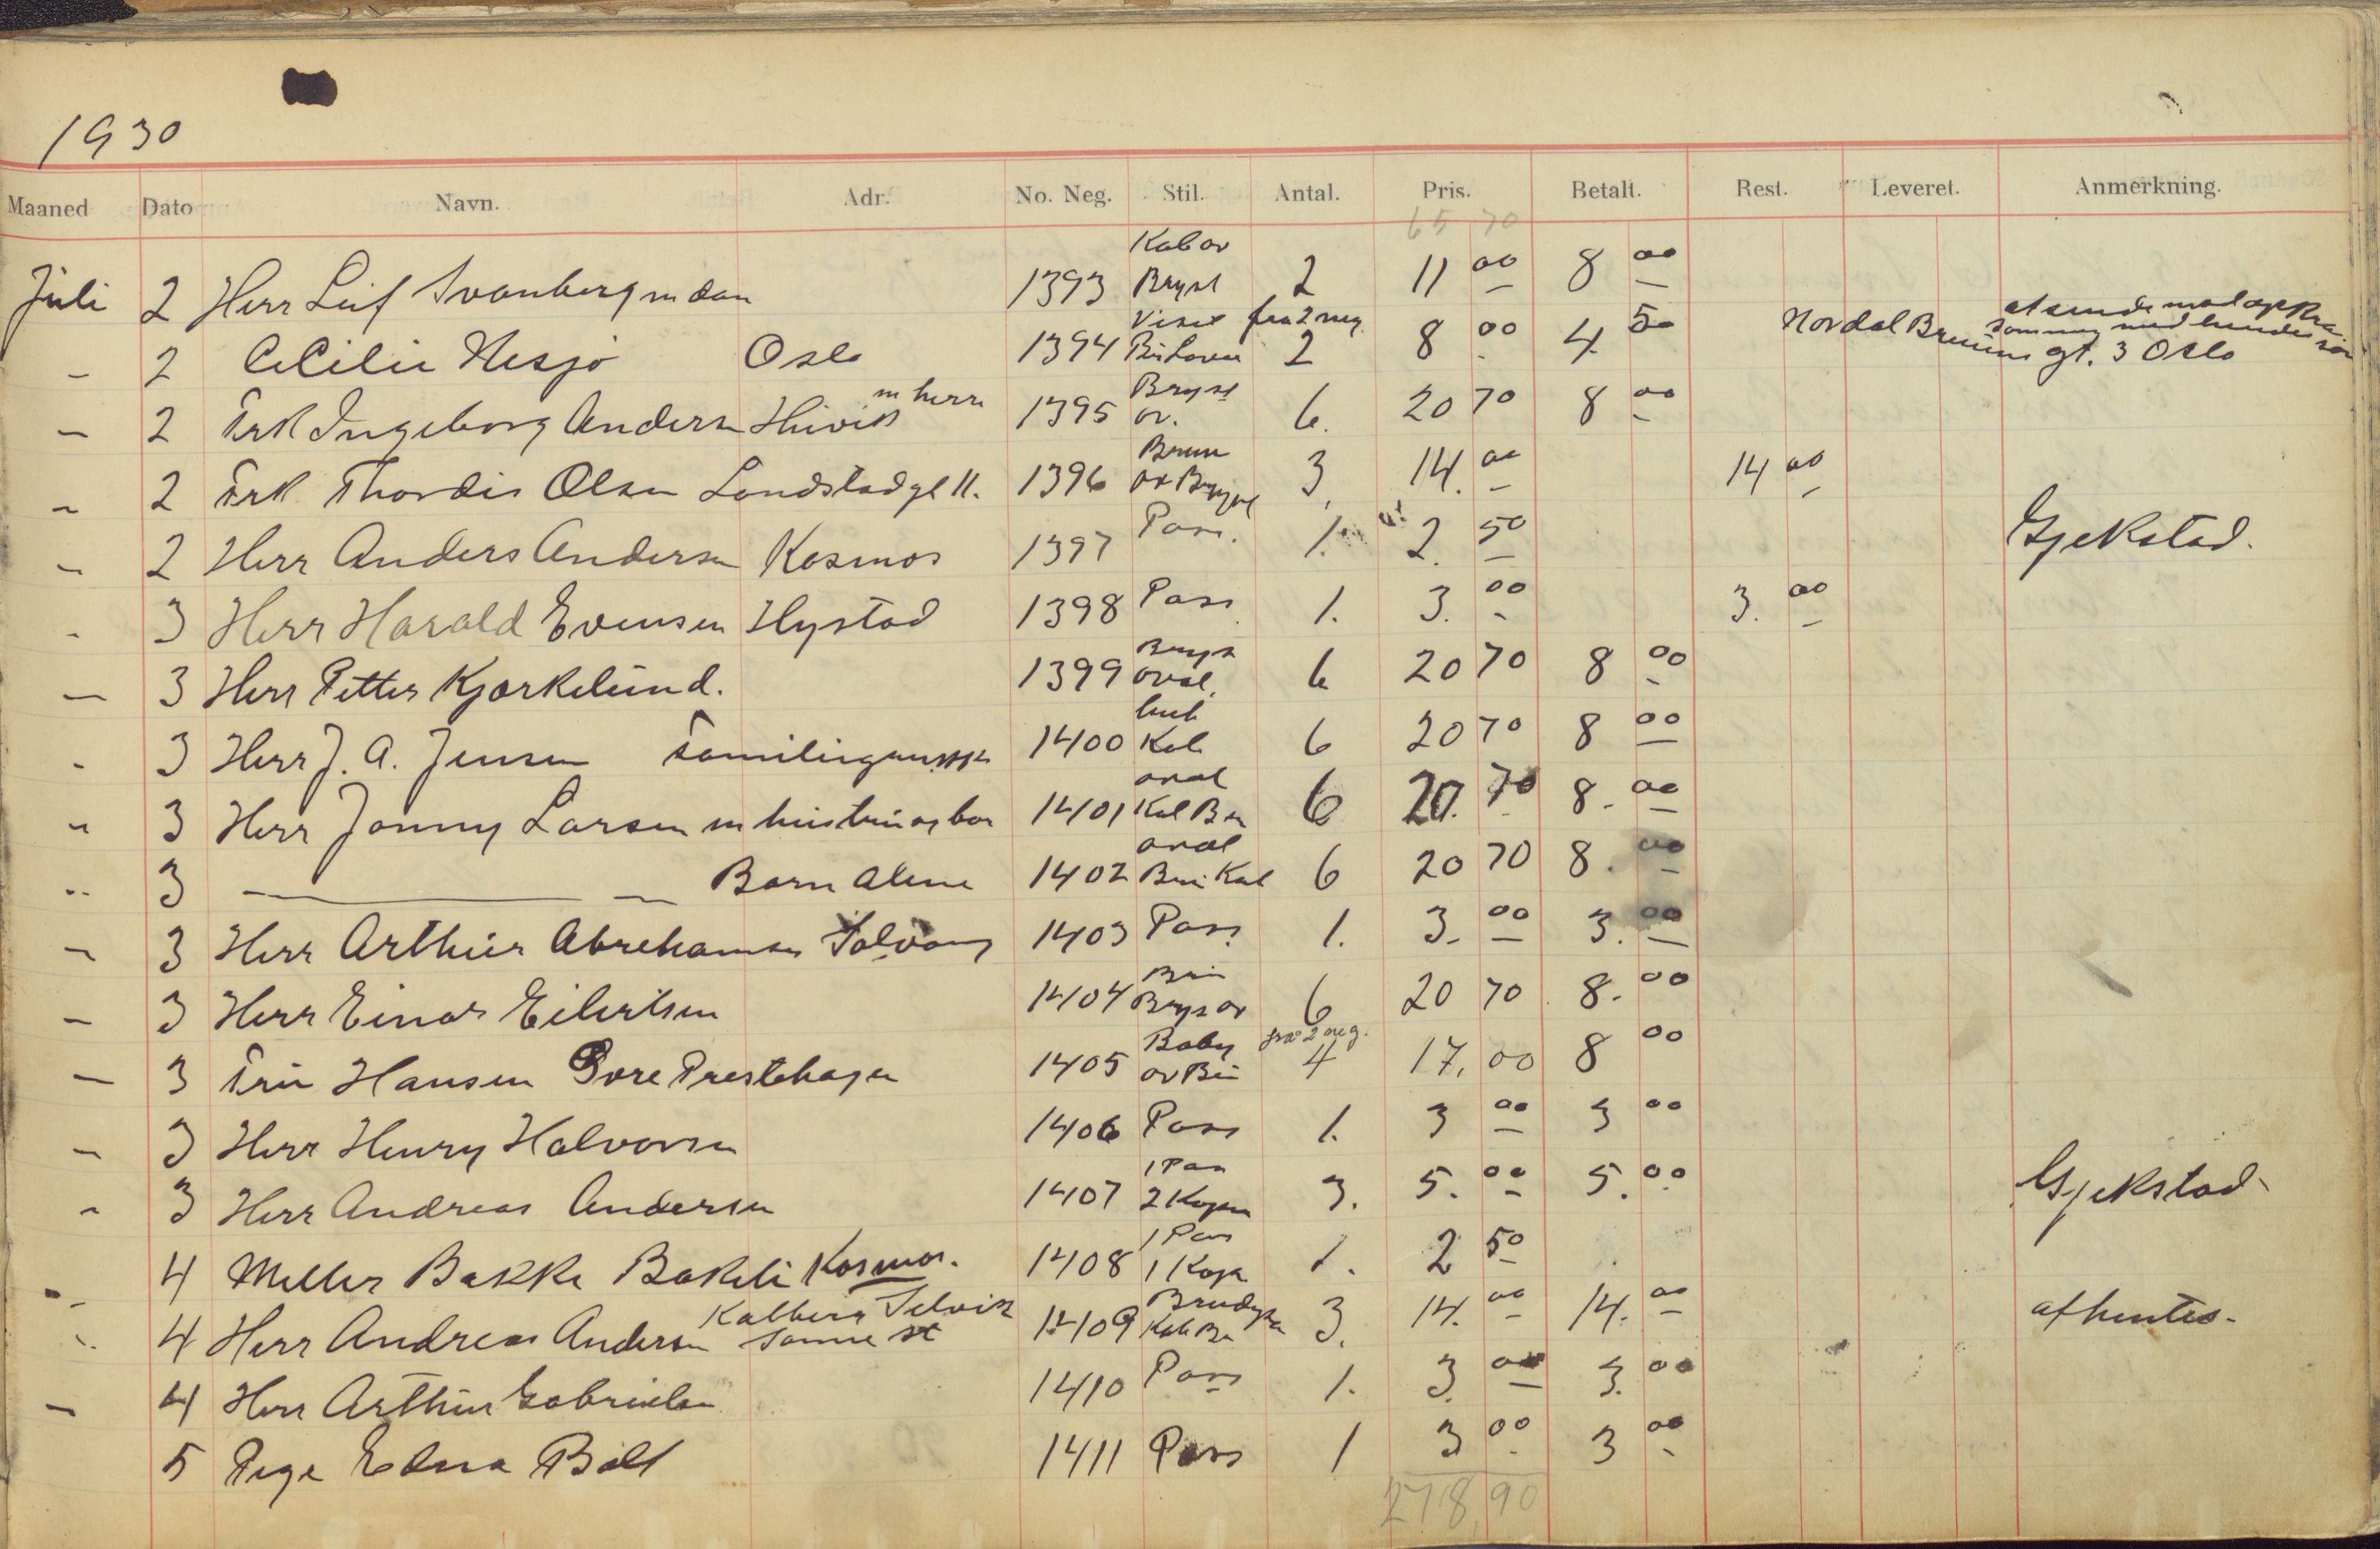 1930
Maaned Dato Navn. Adr. No. Neg. Stil. Antal. Pris. Betalt. Rest. Leveret. Anmerkning.
65 70
Juli 2 Herr Leif Svanberg m dam 1393 Kab ov Bryst 2 11 00 8 00
- 2 Cecilie Nesjø Oslo 1394 Visit 2 fra 2 neg. 8 00 4 50 Nordal Bruuns gt. 3 Oslo
- 2 Frk Ingeborg Andersen Hivik m herre 1395 Bryst ov. 6. 20 70 8 00
- 2 Frk. Thordis Olsen Landstadgt 11. 1396 Brun ov Bryst 3. 14. 00 14 00
- 2 Herr Anders Andersen Kosmos 1397 Pass. 1. 2. 50 Gjekstad.
- 3 Herr Harald Evensen Hystad 1398 Pass 1. 3. 00 3. 00
- 3 Herr Petter Kjærkelund. 1399 Bryst oval. 6 20 70 8 00
- 3 Herr J. A. Jensen Familiegruppe 1400 Kab 6 20 70 8 00
" 3 Herr Jonny Larsen m hustru og barn 1401 oval Kab Bru 6 20. 70 8. 00
" 3 — — Barn Alene 1402 oval Bru Kab 6 20 70 8. 00
- 3 Herr Arthur Abrehamsen Solvang 1403 Pass 1. 3. 00 3. 00
- 3 Herr Einar Eilertsen 1404 Bru Brys ov 6 20 70 8. 00
- 3 Fru Hansen Gore Prestehagen 1405 Baby ov Bru fra 2 neg. 4 17, 00 8 00
- 3 Herr Henry Halvorsen 1406 Pass 1. 3 00 3 00
- 3 Herr Andreas Andersen 1407 1 Pass 2 Kopier 3. 5. 00 5. 00 Gjekstad
- 4 Meller Bakke Bakeli Kosmos. 1408 1 Pass 1 Kopi 1. 2 50
- 4 Herr Andreas Andersen Kalberg Selvik Samme st 1409 Kab Bru 3. 14. 00 14. 00 afhentes.
- 4 Herr Arthur Gabrielsen 1410 Pass 1. 3. 00 3. 00
5 Pige Edna Ball 1411 Pass 1 3 00 3 00
278,90